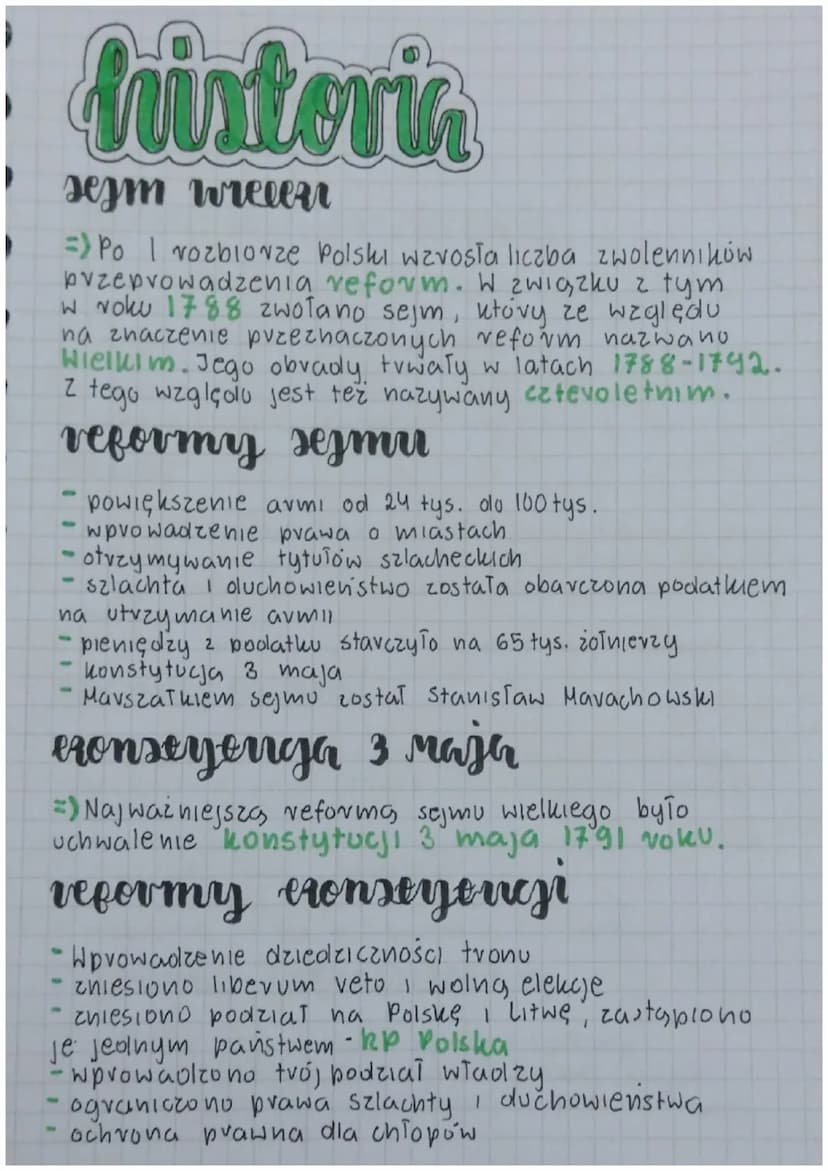 historia
sejm wielki
=> Po I rozbiorze Polski wzrosła liczba zwolenników
przeprowadzenia reform. W związku z tym
w roku 1788 zwołano sejm, który ze względu
na znaczenie przeznaczonych reform nazwano
Wielkim. Jego obrady trwały w latach 1788-1792.
Z tego względu jest też nazywany czteroletnim.
reformy sejmu
- powiększenie armi od 24 tys. do 100 tys.
- wprowadzenie prawa o miastach
- otrzymywanie tytułów szlacheckich
- szlachta i duchowieństwo została obarczona podatkiem
na utrzymanie armii
- pieniędzy z podatku starczyło na 65 tys. żołnierzy
- konstytucja 3 maja
- Marszałkiem sejmu został Stanisław Marachowski
konstytucja 3 maja
=> Najważniejszą reformą sejmu wielkiego było
uchwalenie konstytucji 3 maja 1791 roku.
reformy konstytucji
- Wprowadzenie dziedziczności tronu
- zniesiono liberum veto i wolną elekcje
- zniesiono podział na Polskę i Litwę, zastąpiono
je jednym państwem - RP Polska
- wprowadzono trójpodział władzy
- ograniczono prawa szlachty i duchowieństwa
- ochrona prawna dla chłopów